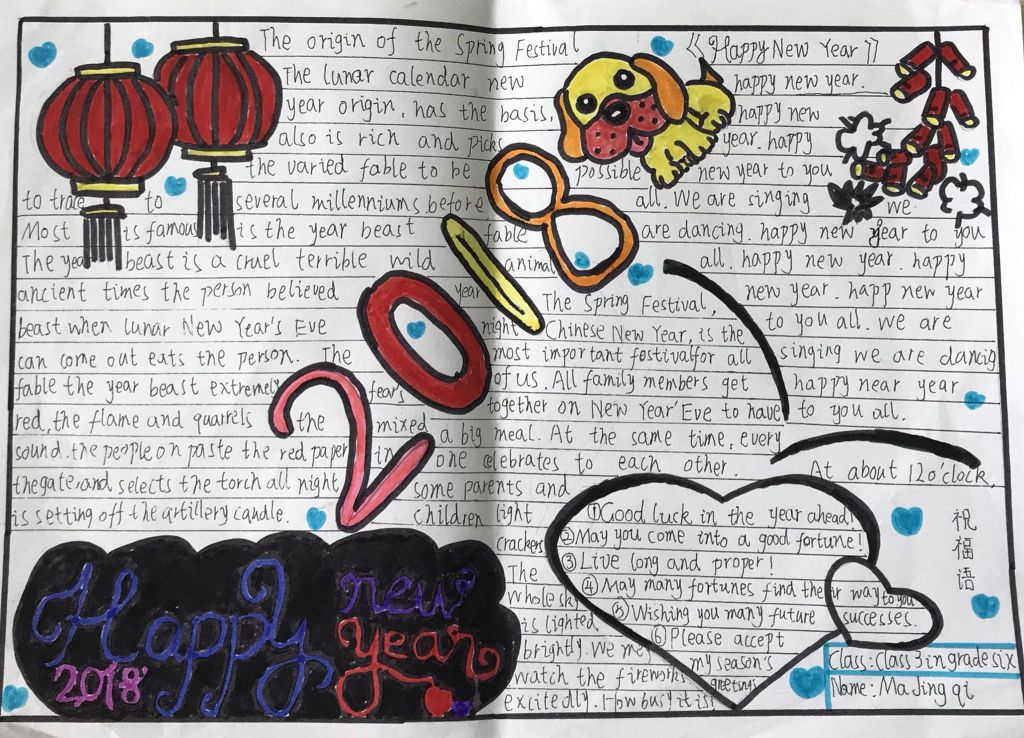 The origin of the Spring Festival
The lunar calendar new
year origin, has the basis,
also is rich and picks
the varied fable to be possible
to trace to several millenniums before
Most is famous is the year beast fable
The year beast is a cruel terrible wild animal
ancient times the person believed year
beast when lunar New Year's Eve night
can come out eats the person. The
fable the year beast extremely fears
red, the flame and quarrels the mixed
sound. the people on paste the red paper in
the gate, and selects the torch all night
is setting off the artillery candle.
《Happy New Year》
happy new year.
happy new
year. happy
new year to you
all. We are singing we
are dancing. happy new year to you
all. happy new year. happy
new year. happy new year
to you all. We are
singing we are dancig
happy near year
to you all.
2018
The Spring Festival,
Chinese New Year, is the
most important festivalfor all
of us. All family members get
together on New Year'Eve to have
a big meal. At the same time, every
one celebrates to each other.
At about 12o'clock,
some parents and
children light
crackers
The
whole sky
is lighted
brightly. We
watch the fireworks
excitedly. How busy it is!
①Good luck in the year ahead!
②May you come into a good fortune!
③Live long and proper!
④May many fortunes find their way to you
⑤Wishing you many future successes.
⑥Please accept
my season's
greetings
祝福语
Happy new year
2018
Class: Class 3 in grade six
Name: Ma Jing qi